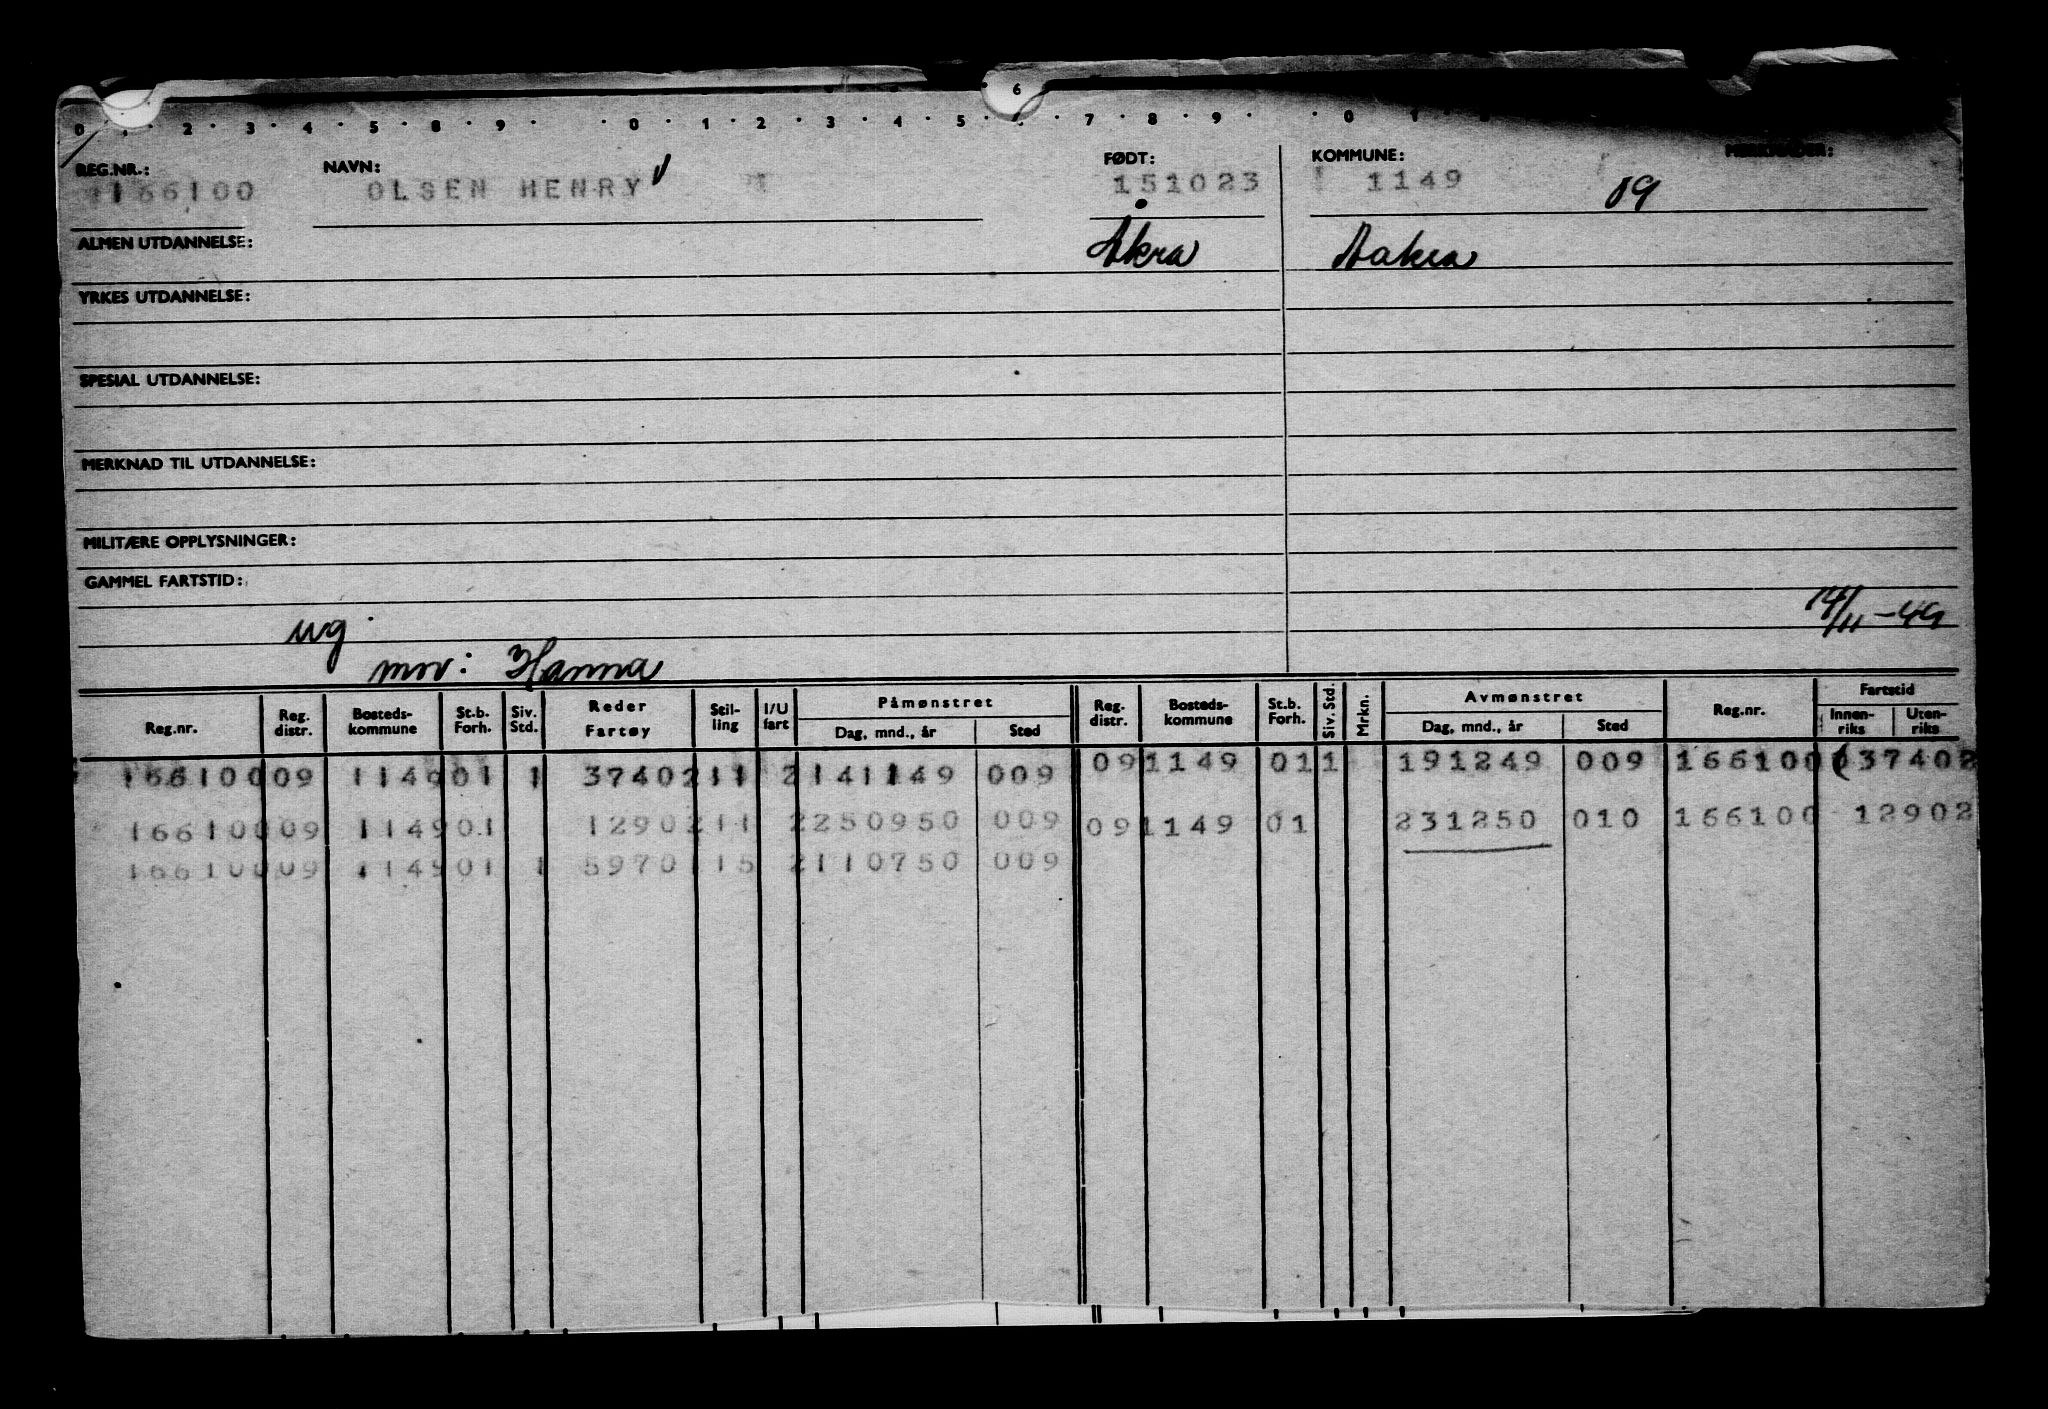 REG.NR.: NAVN: FØDT: KOMMUNE: MERKNADER:
1166100 OLSEN HENRY 151023 1149 09
ALMEN UTDANNELSE: Åkra Aakra
YRKES UTDANNELSE:
SPESIAL UTDANNELSE:
MERKNAD TIL UTDANNELSE:
MILITÆRE OPPLYSNINGER:
GAMMEL FARTSTID:
ug 14/11-49
mor: Hanna
Reg.nr. Reg. distr. Bosteds-kommune St.b. Forh. Siv. Std. Reder Fartøy Stil-ling I/U fart Påmønstret Dag, mnd., år Sted Reg. distr. Bosteds-kommune St.b. Forh. Siv. Std. Mrkn. Avmønstret Dag, mnd., år Sted Reg.nr. Fartstid Innen-riks Uten-riks
166100 09 1149 01 1 3740211 2 141149 009 09 1149 01 1 191249 009 166100 37402
166100 09 1149 01 1290211 2 250950 009 09 1149 01 231250 010 166100 12902
166100 09 1149 01 1 5970115 2 110750 009